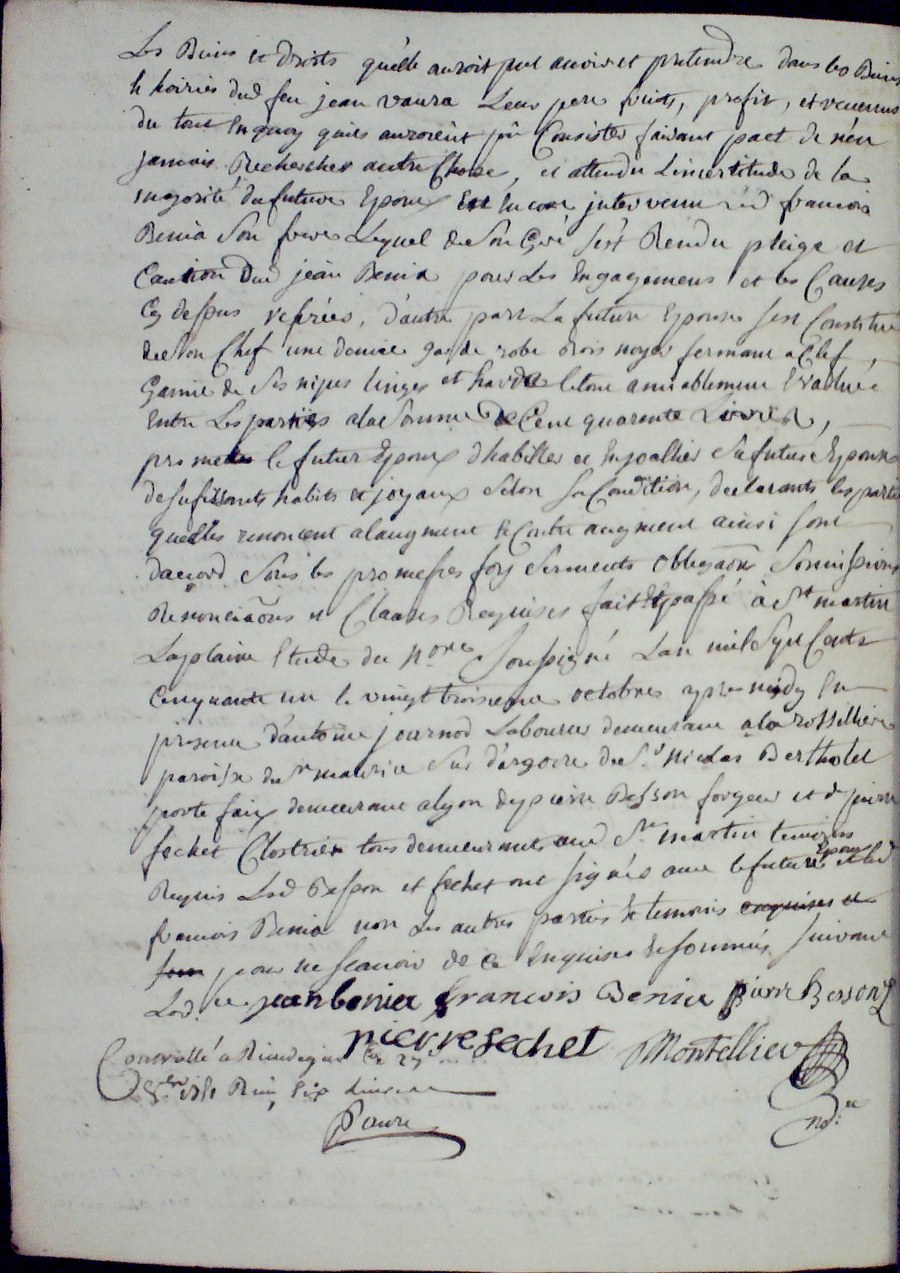 Les Biens et droits quelle auroit put avoir et pretendre dans les Biens
h hoiries dud feu jean vaura Leur pere fruits, profit, et revenus
du tout Enquoy quils auroient pû Consister faisant pact de n'en
jamais Rechercher autre Chose, et attendu Lincertitude de la
majorité du future Epoux Est Encore intervenu led francois
Benia Son frere Lequel de Son Gré s'est Rendu pleige et
Caution Dud jean Benia pour Les Engagemens et les Causes
Cy dessus reférées, d'autre part La future Epouse s'est Constitué
de Son Chéf une garde robe bois noyer fermant a Clef,
Garnie de Ses nipes linges et hardes le tout amiablement Evalué
Entre Les parties a la Somme de Cent quarante Livres,
promet le futur Epoux d'habiller et Enjoallier Sa future Epouse
de sufissants habits et joyaux Selon Sa Condition, declarants les partie
quelles renoncent alaugment & Contre augment ainsi sont
dacord Sous les promesses foy Serments Obligaõns Soumissions
Renonciaõns et Clauses Requises fait Et passé à St martin
Laplaine Etude du nore Soussigné Lan mil Sept Cents
Cinquante un le vingt troisieme octobre apres midy En
presence d'antoine journod Laboureur demeurant ala rossilliere
paroisse de St maurice Sur d'argoire de St. nicolas Bertholet
porte faix demeurant alyon de pierre Besson forgeur et de pierre
sechet Clostrier tous demeurant aud St martin temoins
Requis Lesd Besson et sechet ont signés avec le future Epoux et led
francois Benia non Les autres parties & temoins enquises et
som pour ne scavoir de ce Enquises & sommés suivant
Lord.ce jean benier francois Benia pierre Besson
pierre sechet Montellier
Controllé a Rivedegier le 29
8bre 1751 Reçu six Livres
nore